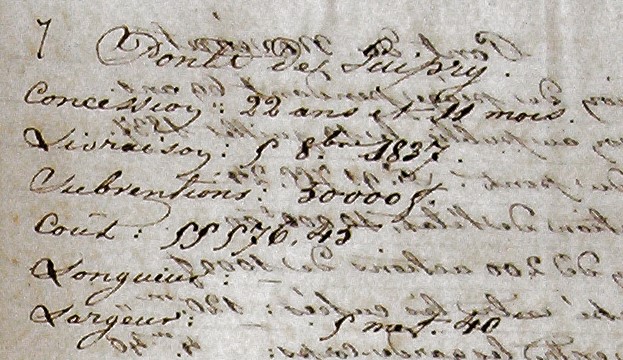 7
Pont de Guipry.
Concession : 22 ans et 11 mois.
Livraison : 5 8bre 1837.
Subventions : 30000 f.
Coût : 55576.45
Longueur :
Largeur : 5 met. 40